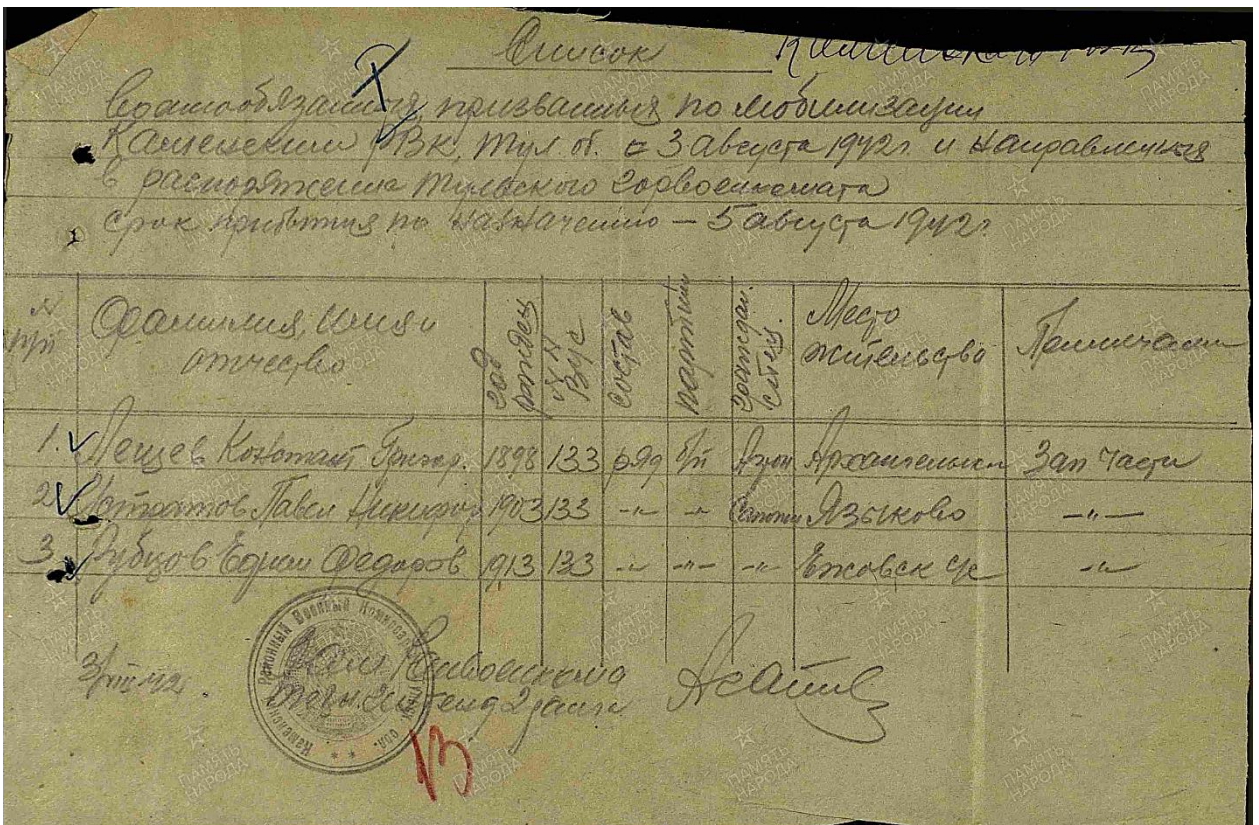 Список Каменского РВК
военнообязанных, призванных по мобилизации
Каменским РВК, Тул. об. с 3 августа 1942 г и направленных
в распоряжение Тульского Горвоенкомата
срок прибытия по назначению — 5 августа 1942 г.
№ п/п Фамилия, имя и отчество год рожден № ВУС состав партийн граждан. спец. Место жительство Примечани
1. Лещев Констант Григор. 1898 133 ряд б/п Архангельск Зап части
2 Павел Никифор 1903 133 -"- -"- Сапожн Языково -"-
3. Рубцов Ефрем Федоров 1913 133 -"- -"- -"- Ежовск с/с -"-
3/VIII-42
Зам Райвоенкома
техн. интенд 2 ранга
Каменский Районный Военный Комиссариат Тульской обл.
13
ПАМЯТЬ НАРОДА